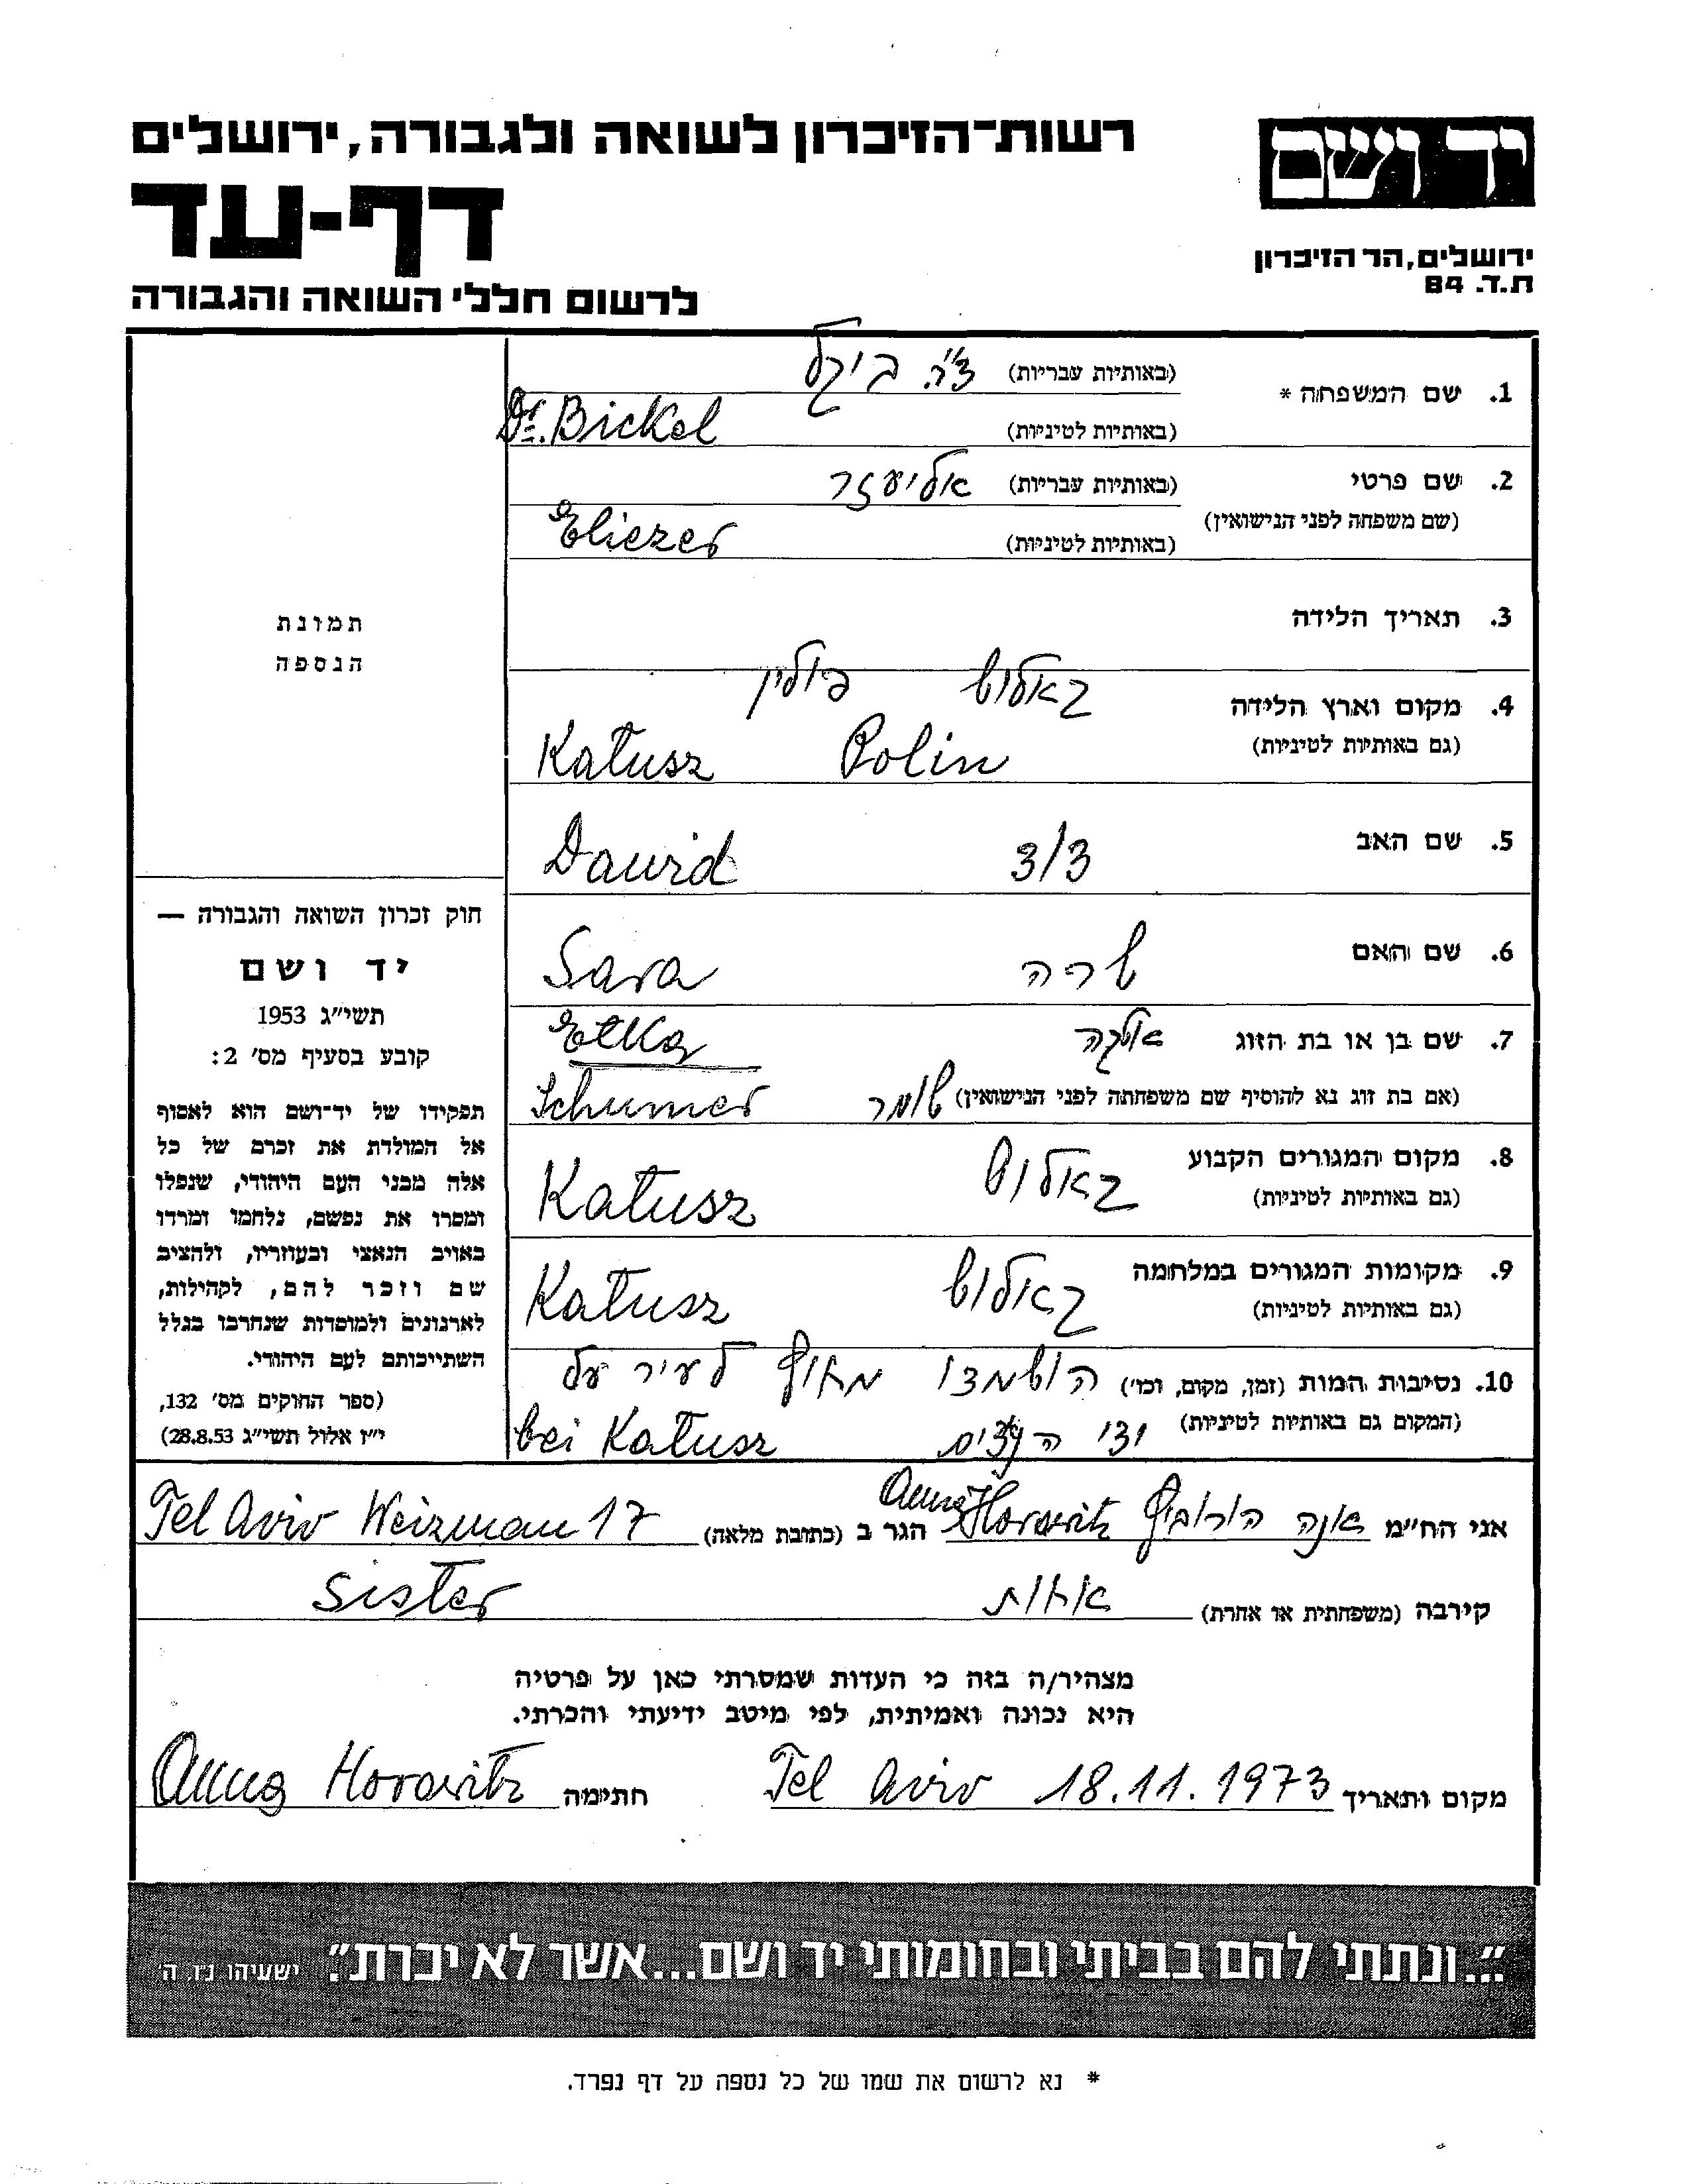 יד ושם
רשות־הזיכרון לשואה ולגבורה, ירושלים
דף-עד
ירושלים, הר הזיכרון
ת.ד. 84
לרשום חללי השואה והגבורה
1. שם המשפחה * (באותיות עבריות) ד״ר ביקל
(באותיות לטיניות) Dr. Bickel
2. שם פרטי (באותיות עבריות) אליעזר
(שם משפחה לפני הנישואין)
(באותיות לטיניות) Eliezer
3. תאריך הלידה
4. מקום וארץ הלידה קאלוש פולין
(גם באותיות לטיניות) Katusz Polin
5. שם האב דוד Dawid
6. שם האם שרה Sara
7. שם בן או בת הזוג אטקה Etka
(אם בת זוג נא להוסיף שם משפחתה לפני הנישואין) שומר Schumer
8. מקום המגורים הקבוע קאלוש Katusz
(גם באותיות לטיניות)
9. מקומות המגורים במלחמה קאלוש Katusz
(גם באותיות לטיניות)
10. נסיבות המות (זמן, מקום, וכו׳) הושמדו מחוץ לעיר על
(המקום גם באותיות לטיניות) ידי הנצים bei Katusz
תמונת
הנספה
חוק זכרון השואה והגבורה —
יד ושם
תשי״ג 1953
קובע בסעיף מס׳ 2:
תפקידו של יד־ושם הוא לאסוף
אל המולדת את זכרם של כל
אלה מבני העם היהודי, שנפלו
ומסרו את נפשם, נלחמו ומרדו
באויב הנאצי ובעוזריו, ולהציב
שם וזכר להם, לקהילות,
לארגונים ולמוסדות שנחרבו בגלל
השתייכותם לעם היהודי.
(ספר החוקים מס׳ 132,
י״ז אלול תשי״ג 28.8.53)
אני הח״מ אנה הורוביץ Anna Horowitz הגר ב (כתובת מלאה) Tel Aviv Weizman 17
קירבה (משפחתית או אחרת) אחות Sister
מצהיר/ה בזה כי העדות שמסרתי כאן על פרטיה
היא נכונה ואמיתית, לפי מיטב ידיעתי והכרתי.
מקום ותאריך Tel Aviv 18.11.1973 חתימה Anna Horowitz
״...ונתתי להם בביתי ובחומותי יד ושם...אשר לא יכרת״. ישעיהו נ״ו, ה׳
* נא לרשום את שמו של כל נספה על דף נפרד.